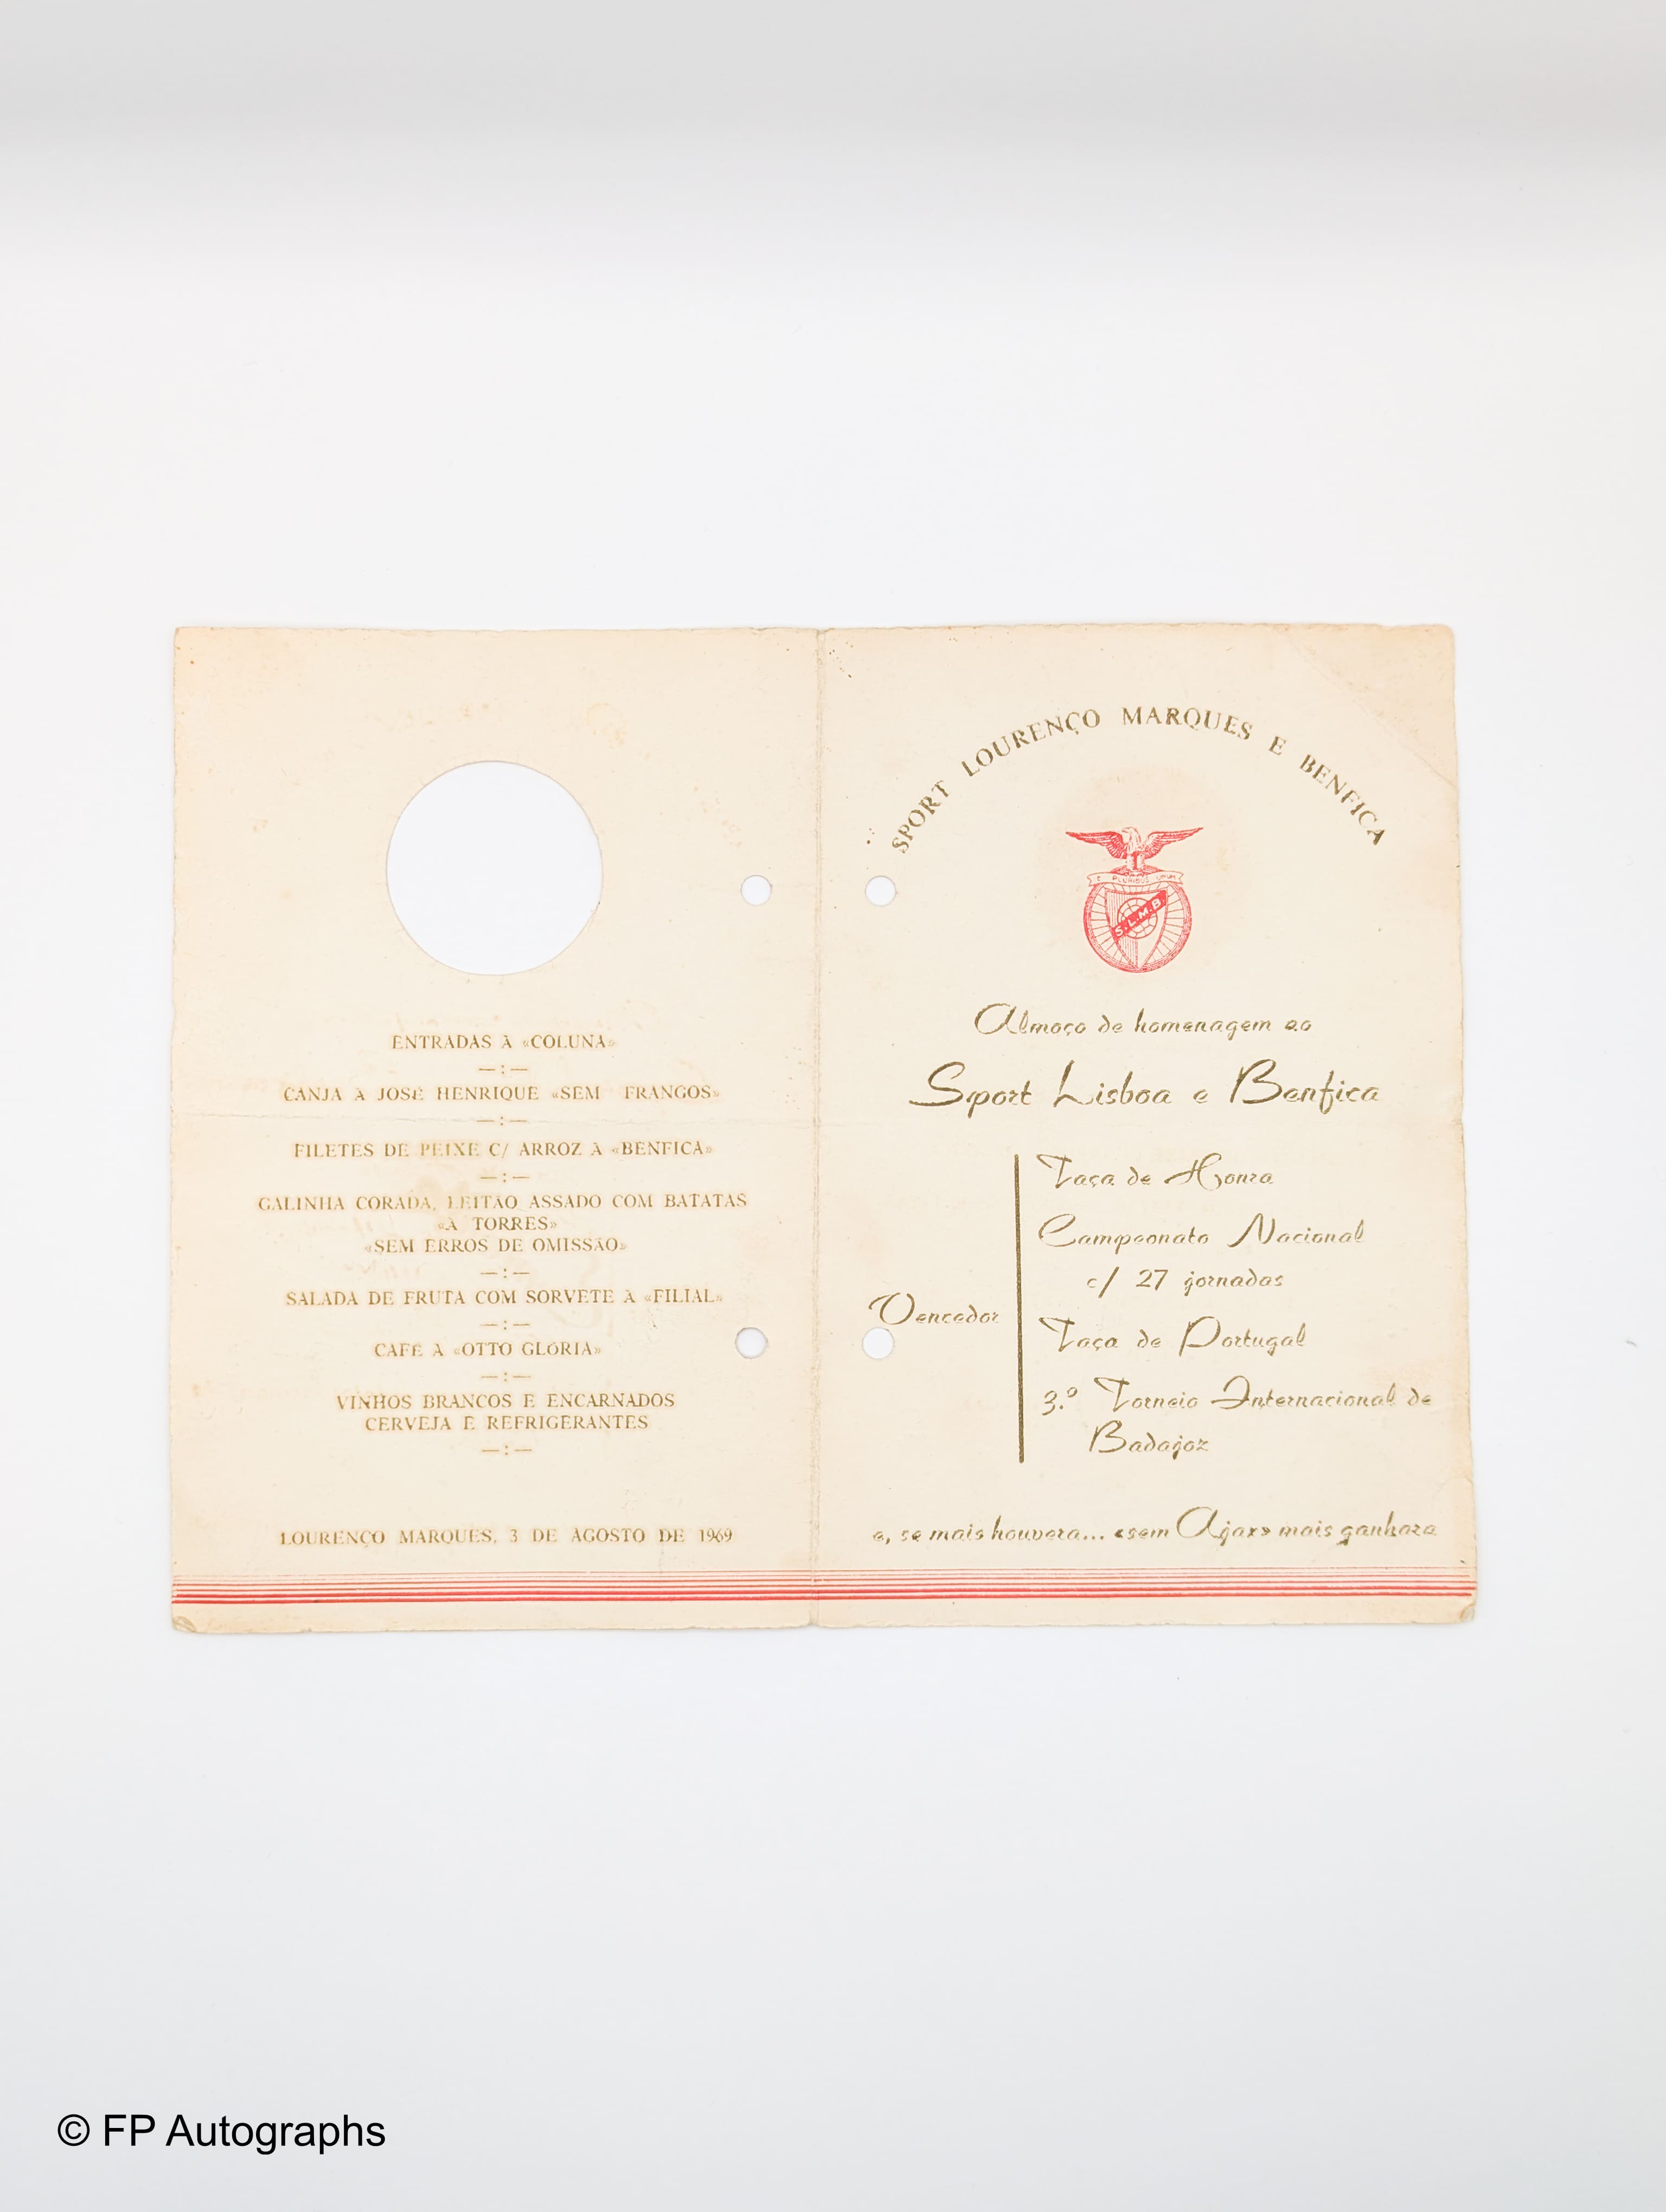 ENTRADAS À «COLUNA»
—:—
CANJA À JOSÉ HENRIQUE «SEM FRANGOS»
—:—
FILETES DE PEIXE C/ ARROZ À «BENFICA»
—:—
GALINHA CORADA, LEITÃO ASSADO COM BATATAS
«À TORRES»
«SEM ERROS DE OMISSÃO»
—:—
SALADA DE FRUTA COM SORVETE À «FILIAL»
—:—
CAFÉ A «OTTO GLÓRIA»
—:—
VINHOS BRANCOS E ENCARNADOS
CERVEJA E REFRIGERANTES
—:—
LOURENÇO MARQUES, 3 DE AGOSTO DE 1969
SPORT LOURENÇO MARQUES E BENFICA
E PLURIBUS UNUM
S.L.M.B.
Almoço de homenagem ao
Sport Lisboa e Benfica
Vencedor
Taça de Honra
Campeonato Nacional
c/ 27 jornadas
Taça de Portugal
3.º Torneio Internacional de
Badajoz
e, se mais houvera... «sem Ajax» mais ganhara
© FP Autographs